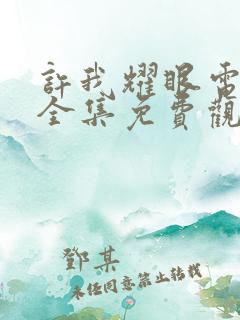 許我耀眼電
全集免費觀
鄧某
未經同意禁止轉載